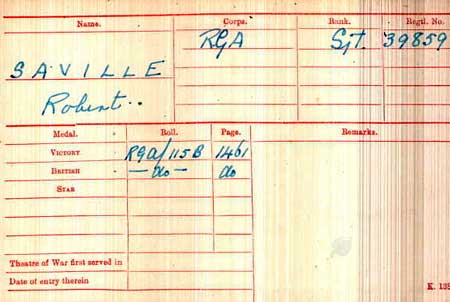 Name. Corps. Rank. Regtl. No.
SAVILLE RGA Sjt. 39859
Robert..
Medal. Roll. Page. Remarks.
VICTORY RGA/115B 1461
BRITISH —do— do
STAR
Theatre of War first served in
Date of entry therein
K. 135